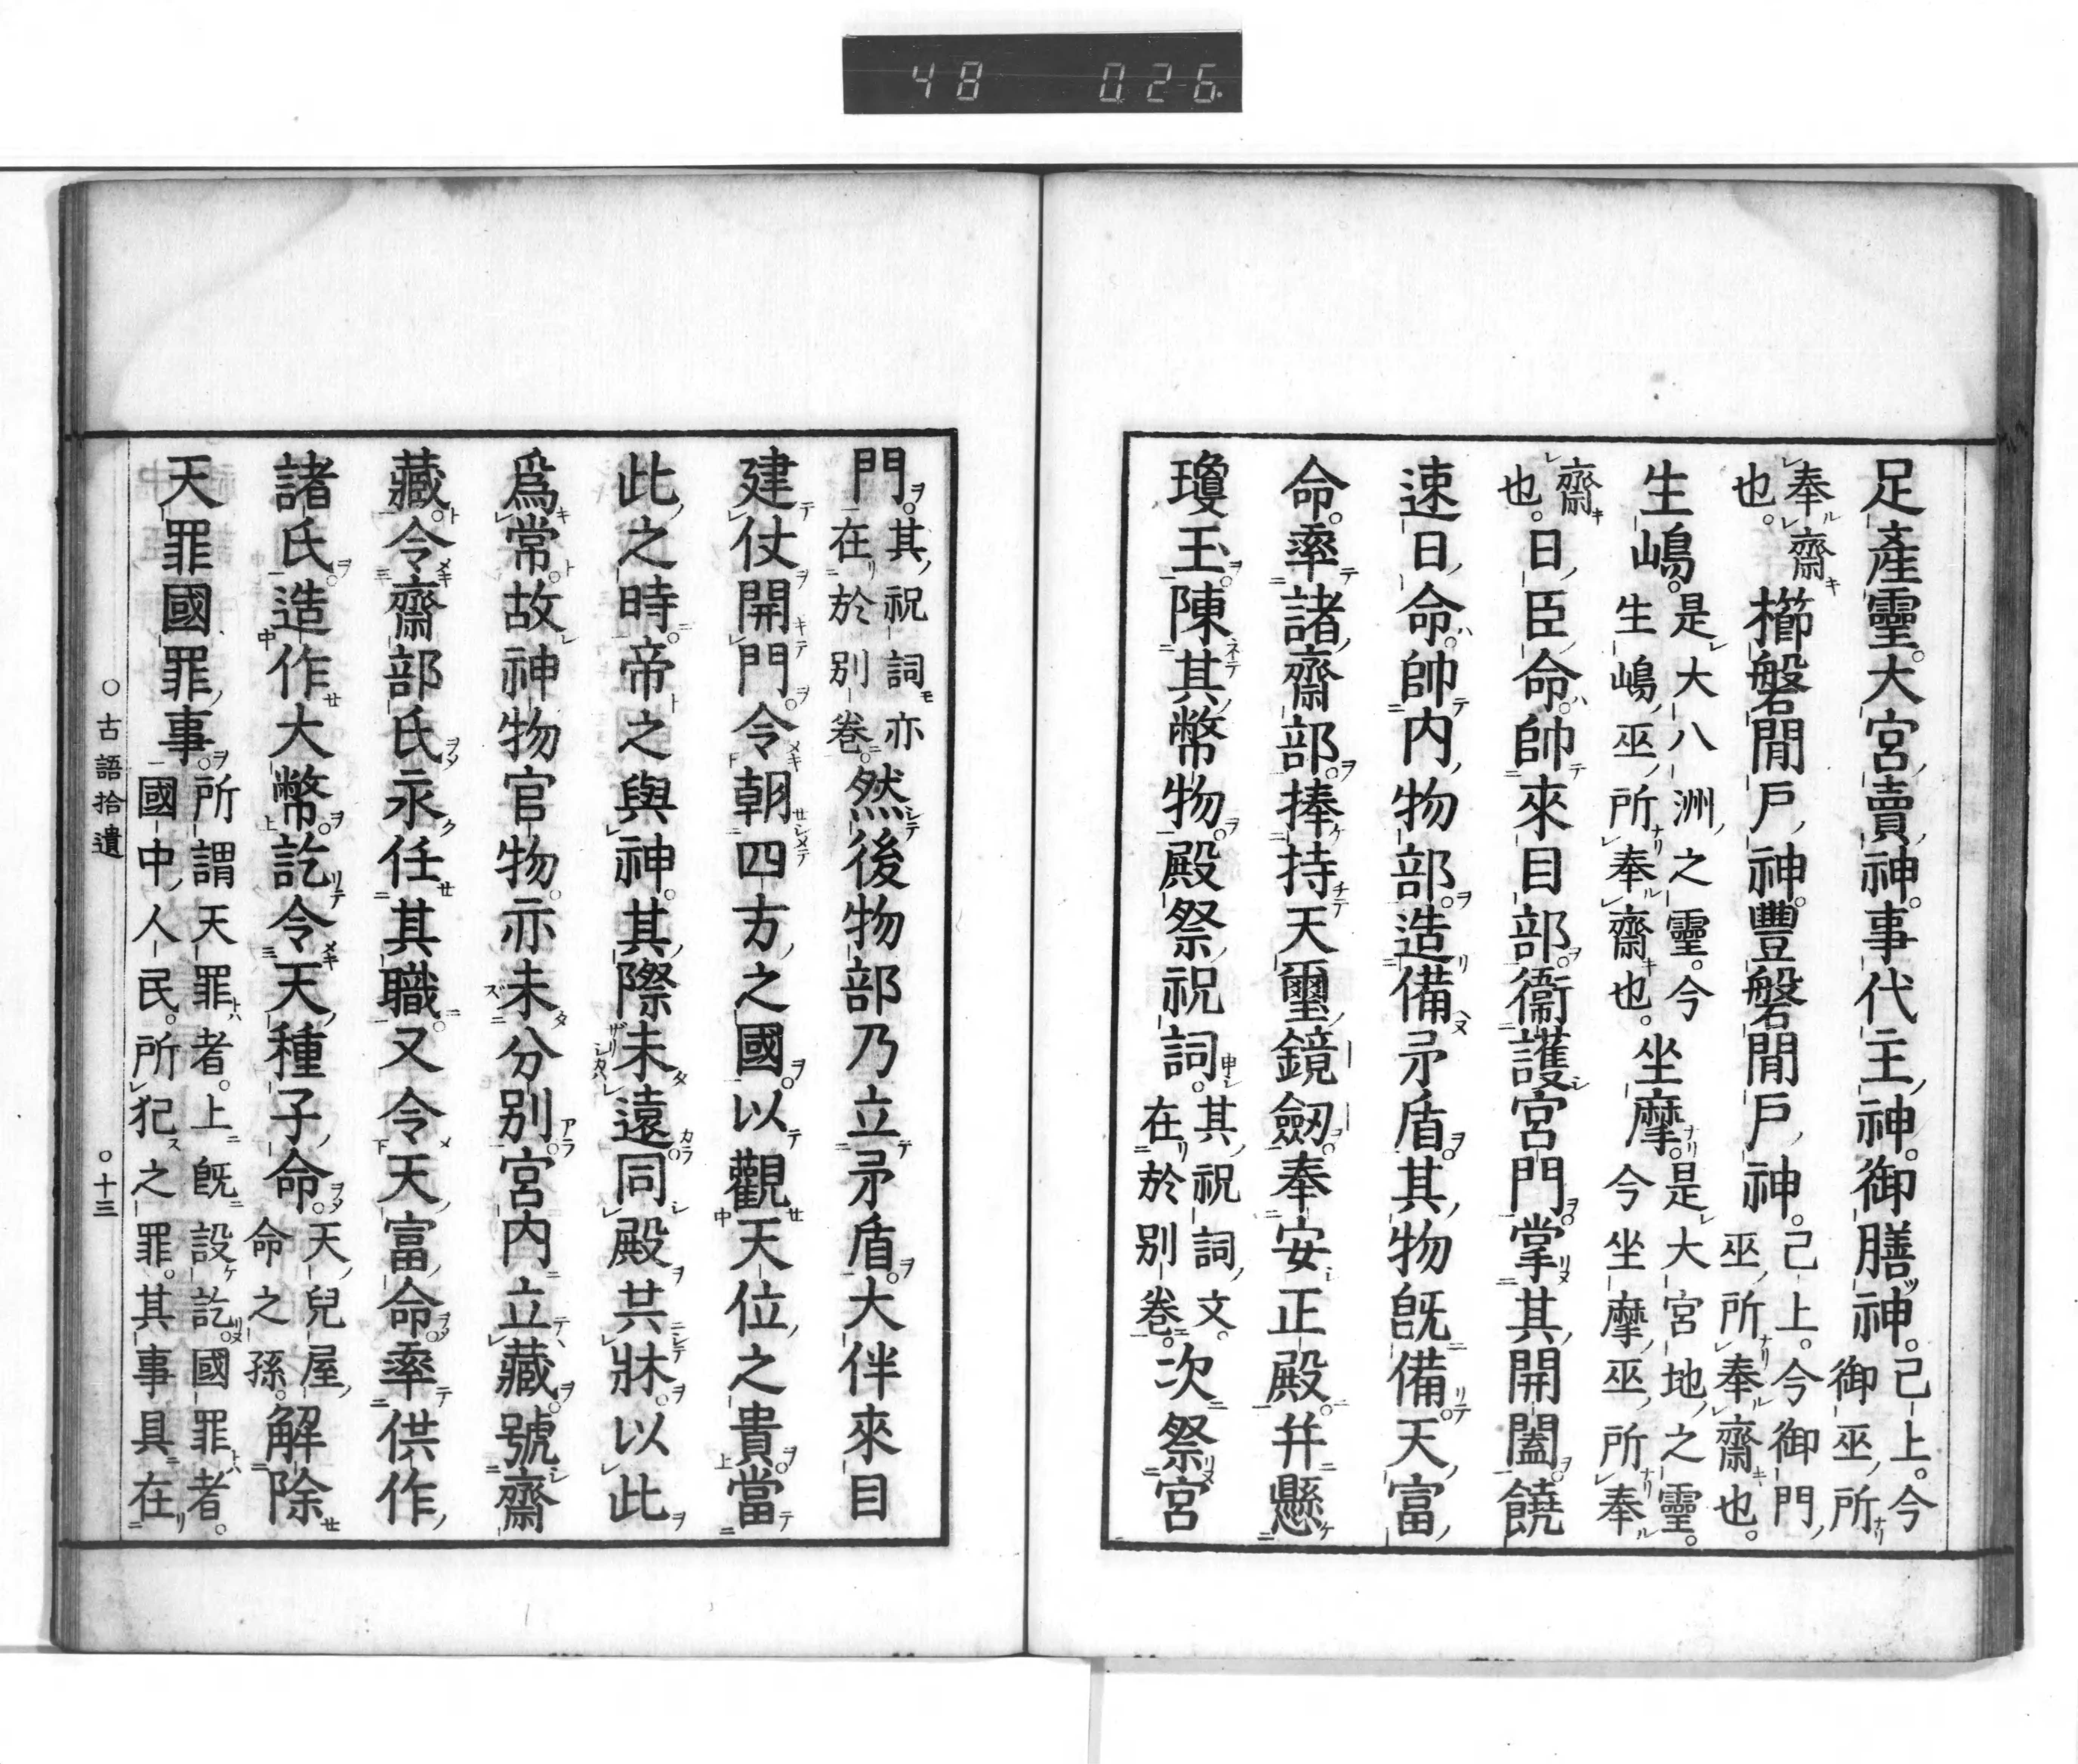 48 026
足產靈。大宮賣神。事代主神。御膳神。已上。今御巫所
奉齋也。櫛磐間戶神。豐磐間戶神。已上。今御門巫所奉齋也。
生嶋。是大八洲之靈。今生嶋巫所奉齋也。坐摩。是大宮地之靈。今坐摩巫所奉
齋也。日臣命。帥來目部。衞護宮門。掌其開闔。饒
速日命。帥內物部。造備矛盾。其物既備。天富
命。率諸齋部。捧持天璽鏡劔。奉安正殿。幷懸
瓊玉。陳其幣物。殿祭祝詞。其祝詞文。在於別卷。次祭宮
門。其祝詞亦在於別卷。然後物部乃立矛盾。大伴來目
建仗開門。令朝四方之國。以觀天位之貴。當
此之時。帝之與神。其際未遠。同殿共牀。以此
爲常。故神物官物。亦未分別。宮內立藏。號齋
藏。令齋部氏永任其職。又令天富命率供作
諸氏。造作大幣。訖令天種子命。天兒屋命之孫。解除
天罪國罪事。所謂天罪者。上既設訖。國罪者。國中人民。所犯之罪。其事具在
○古語拾遺 ○十三